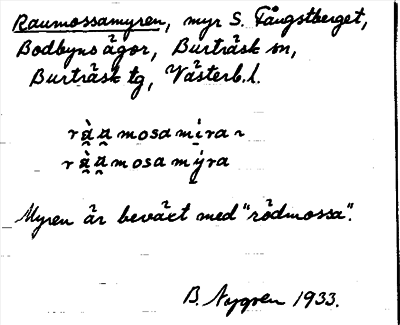 Raumossamyren, myr S. Fångstberget,
Bodbyns ägor, Burträsk sn,
Burträsk tg, Västerb. l.
rà̯a̯mosamìra ~
rà̯a̯mosamýra
Myren är beväxt med "rödmossa".
B. Nygren 1933.